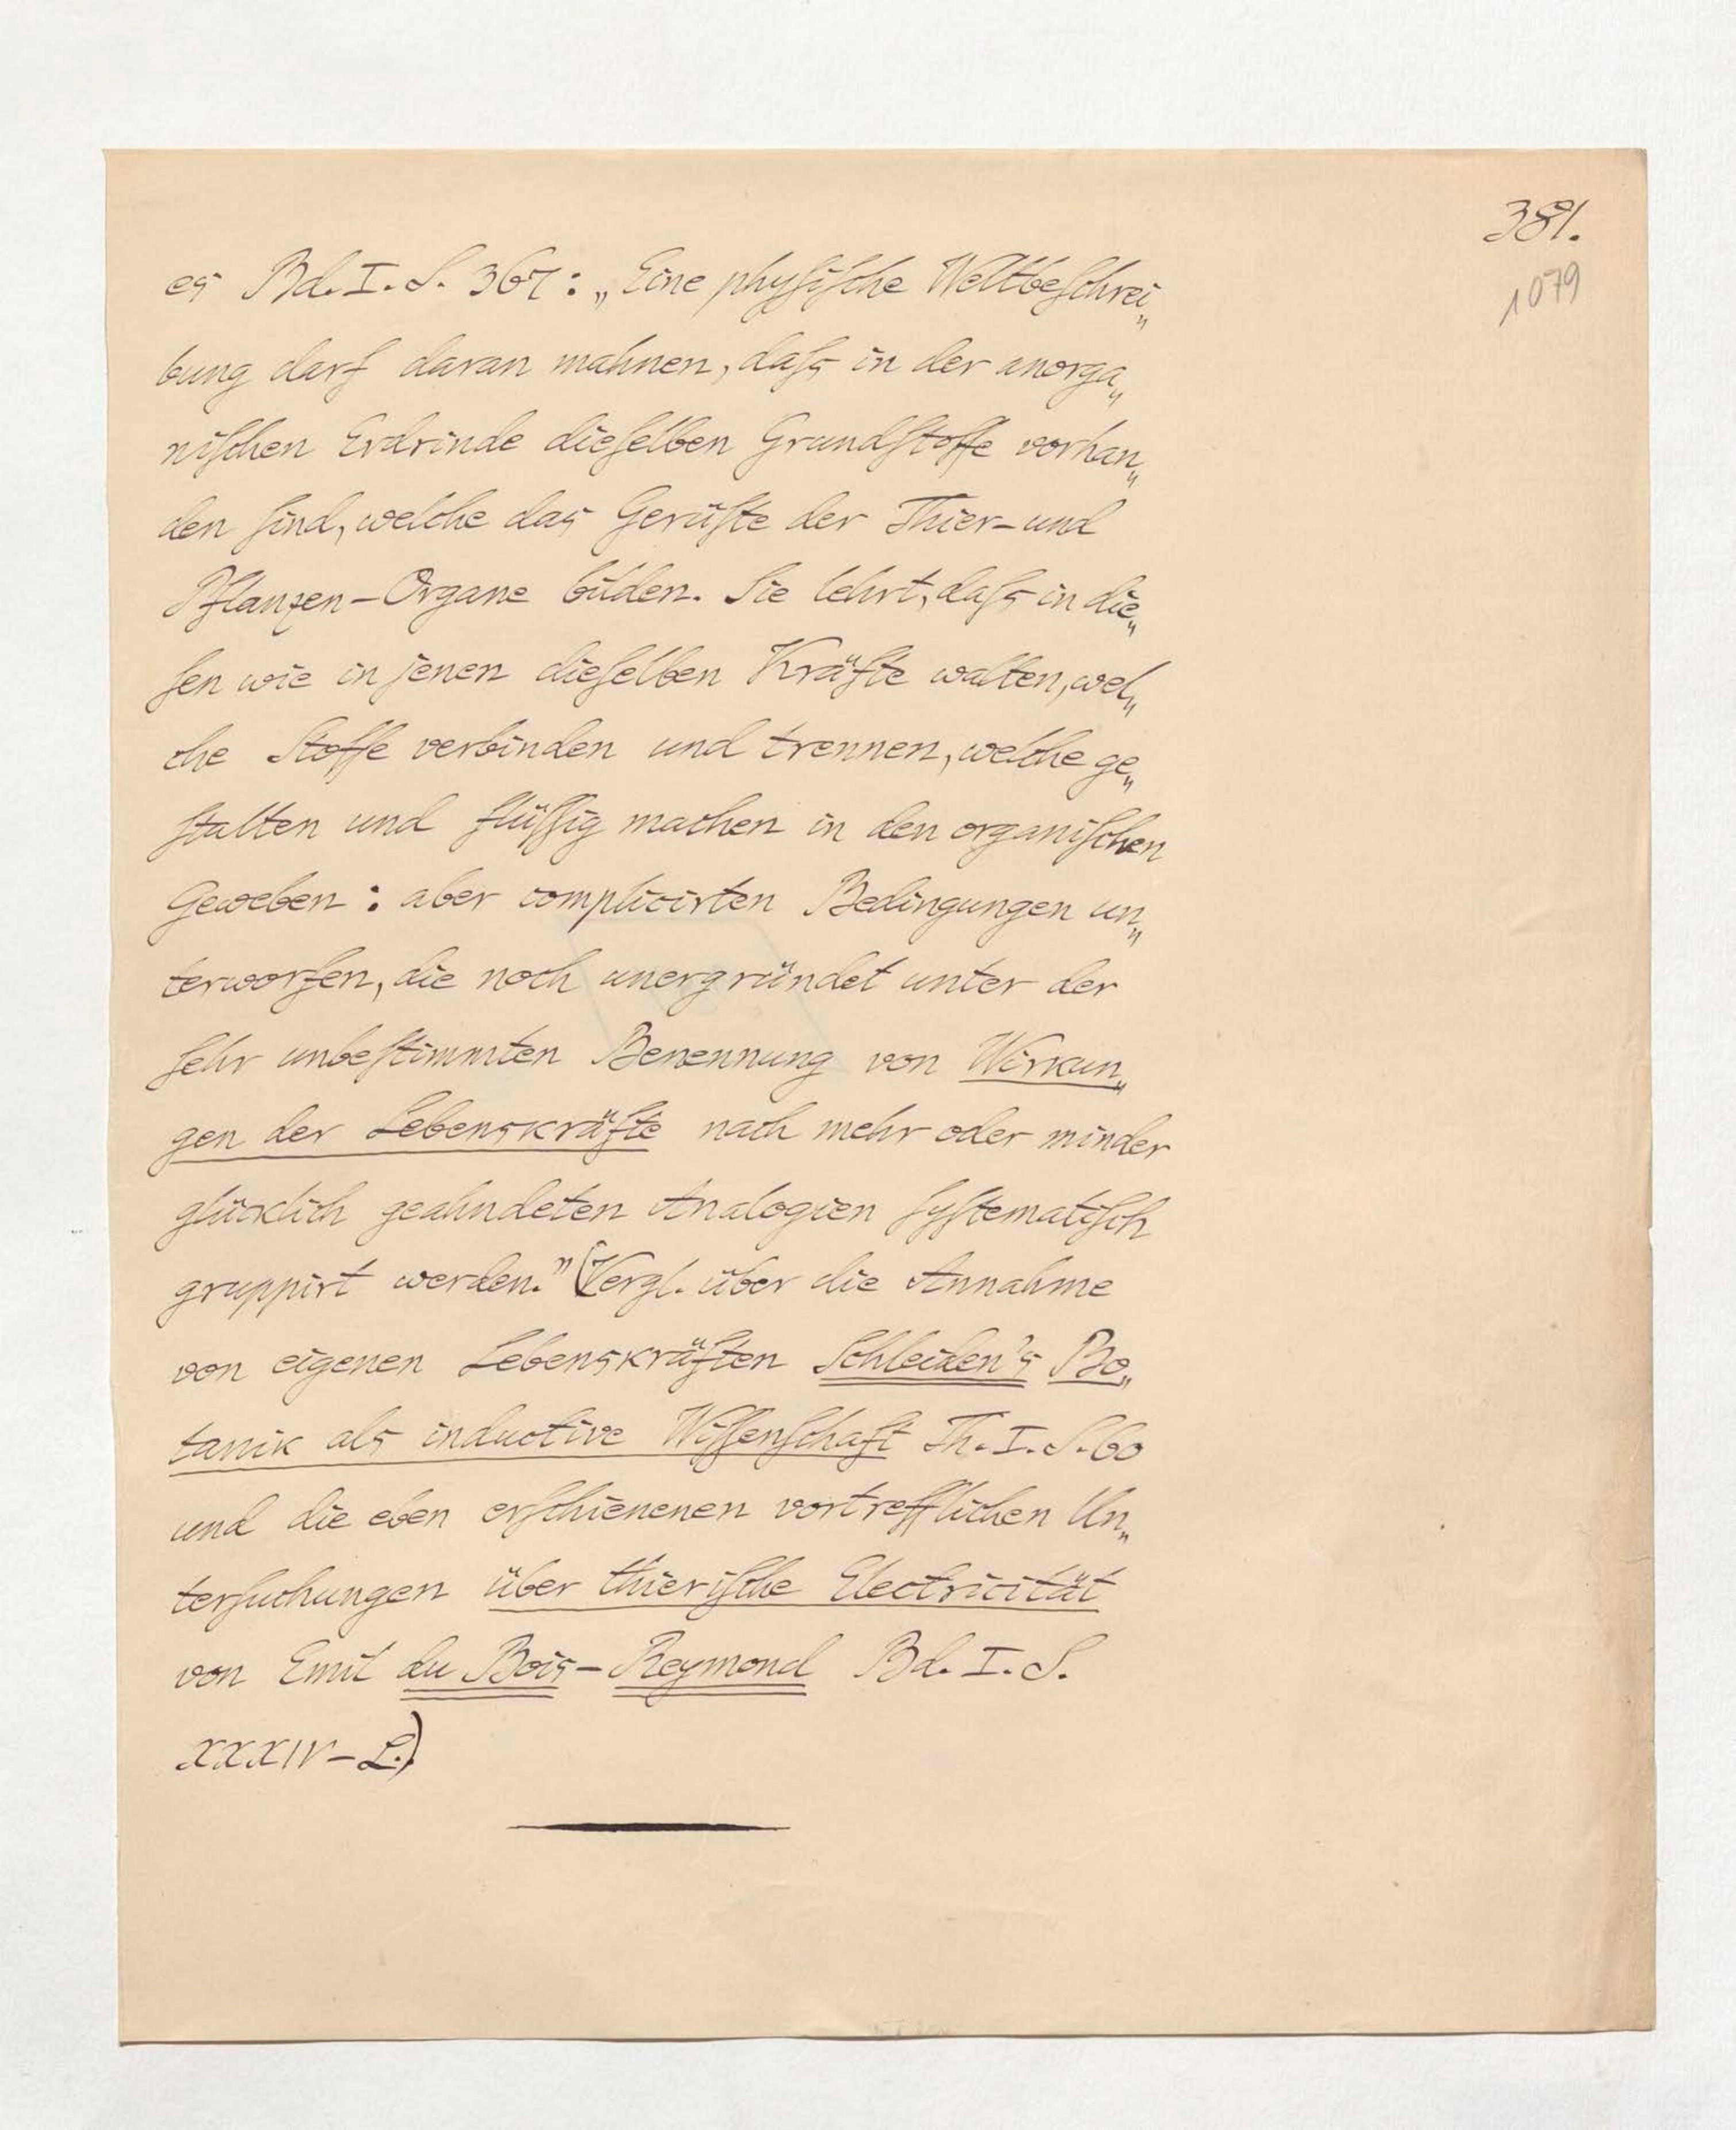 381.
1079
es Bd. I. S. 367: „Eine physische Weltbeschrei„
bung darf daran mahnen, dass in der anorga„
nischen Erdrinde dieselben Grundstoffe vorhan„
den sind, welche das Gerüste der Thier- und
Pflanzen-Organe bilden. Sie lehrt, dass in die„
sen wie in jenen dieselben Kräfte walten, wel„
che Stoffe verbinden und trennen, welche ge„
stalten und flüssig machen in den organischen
Geweben: aber complicirten Bedingungen un„
terworfen, die noch unergründet unter der
sehr unbestimmten Benennung von Wirkun„
gen der Lebenskräfte nach mehr oder minder
glücklich geahndeten Analogien systematisch
gruppirt werden.” (Vergl. über die Annahme
von eigenen Lebenskräften Schleiden's Bo„
tanik als inductive Wissenschaft Th. I. S. 60
und die eben erschienenen vortrefflichen Un„
tersuchungen über thierische Electricität
von Emil du Bois-Reymond Bd. I. S.
XXXIV-L.)